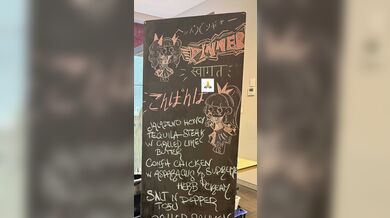 DINNER
स्वागत
こんばんは
JALAPENO HONEY
TEQUILA STEAK
W GRILLED LIME
BUTTER
CONFIT CHICKEN
W ASPARAGUS & SUPREME
HERB CREAM
SALT N PEPPER
TOFU